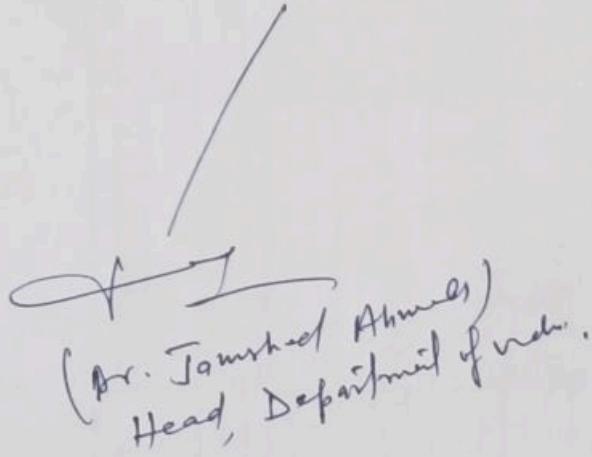 (Dr. Jamshed Ahmad)
Head, Department of